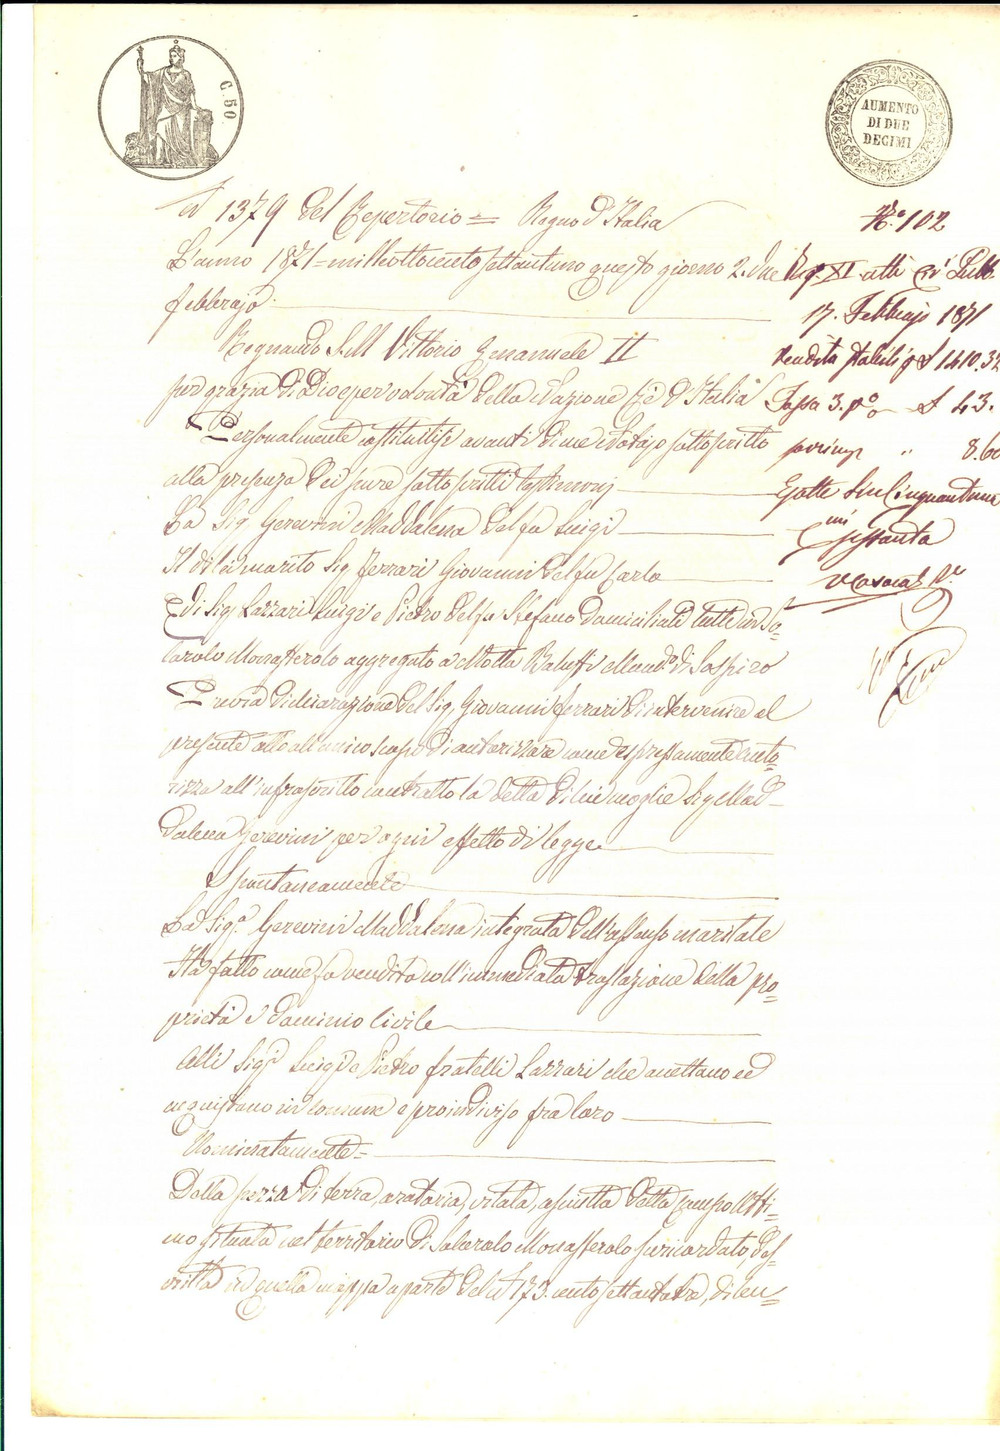 C. 50
AUMENTO
DI DUE
DECIMI
N 1379 del Repertorio = Regno d'Italia
L'anno 1871 = mille ottocento settantuno questo giorno 2. due
febbrajo.
Regnando S. M. Vittorio Emanuele II
per grazia di Dio e per volontà della Nazione Re d'Italia
Personalmente costituitisi avanti di me Notajo sottoscritto
alla presenza dei pure sottoscritti testimonj
La Sig. Gerevini Maddalena del fu Luigi
Il di lei marito Sig. Ferrari Giovanni del fu Carlo
Ed i Sig. Lazzari Luigi e Pietro del fu Stefano domiciliati tutti in So-
larolo Monasterolo aggregato a Motta Baluffi Mand.º di Sospiro
Previa dichiarazione del Sig. Giovanni Ferrari di intervenire al
presente atto all'unico scopo di autorizzare come espressamente auto-
rizza all'infrascritto contratto la detta di lui moglie Sig. Mad-
dalena Gerevini per ogni effetto di legge
Spontaneamente
La Sig.ª Gerevini Maddalena integrata dell'assenso maritale
Ha fatto come fa vendita coll'immediata traslazione della pro-
prietà e dominio civile
Alli Sig.i Luigi e Pietro fratelli Lazzari che accettano ed
acquistano in comune e proindiviso fra loro
Nominatamente =
Della pezza di terra, aratoria, vitata, asciutta detta Campo Otti-
mo situata nel territorio di Solarolo Monasterolo suricordato, des-
critta in quella mappa a parte del N 173. cento settantatre, di cen-
N.º 102
Reg. XI. atti Pubb.
17. Febbrajo 1871
Vendita stabili p £ 1410.32
Tassa 3. p% £ 43.
8.60
Esatte Lire Cinquantuna
Sessanta